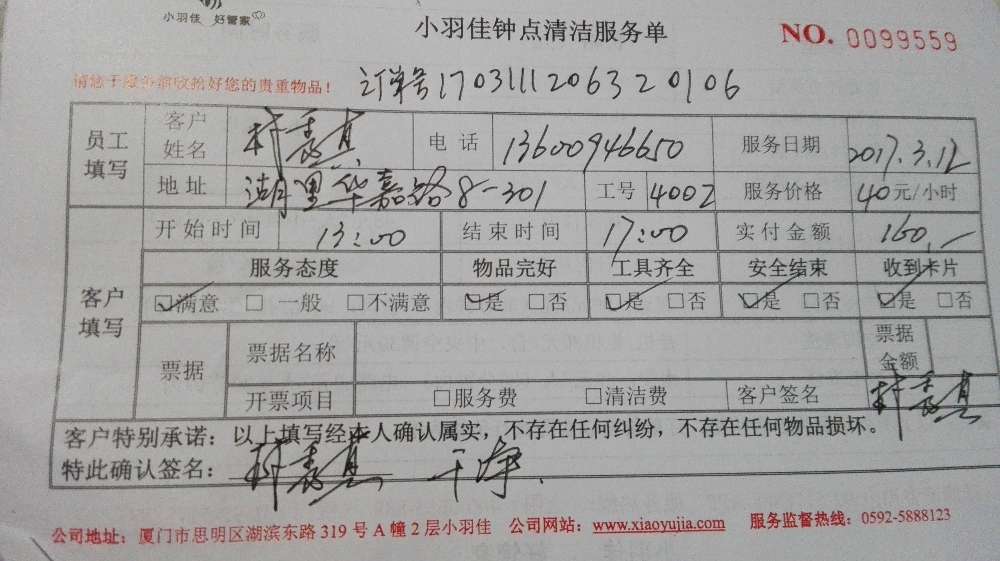 小羽佳 好管家
小羽佳钟点清洁服务单
NO. 0099559
收拾好您的贵重物品!
订单号1703111206320106
员工填写 客户姓名 电话 13600946650 服务日期 2017.3.12
地址 湖里华嘉路8-301 工号 4002 服务价格 40元/小时
客户填写 开始时间 13:00 结束时间 17:00 实付金额 160.-
服务态度 物品完好 工具齐全 安全结束 收到卡片
☑满意 □一般 □不满意 ☑是 □否 ☑是 □否 ☑是 □否 ☑是 □否
票据 票据名称 票据金额
开票项目 □服务费 □清洁费 客户签名
客户特别承诺:以上填写经本人确认属实,不存在任何纠纷,不存在任何物品损坏。
特此确认签名: 干净.
公司地址:厦门市思明区湖滨东路319号A幢2层小羽佳 公司网站:www.xiaoyujia.com 服务监督热线:0592-5888123